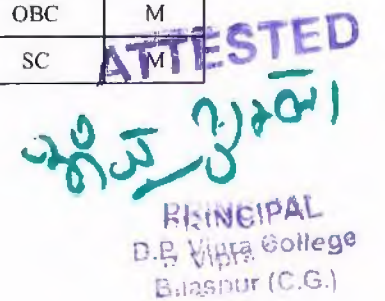 OBC M
SC M
ATTESTED
PRINCIPAL
D.P. Vipra College
Bilaspur (C.G.)